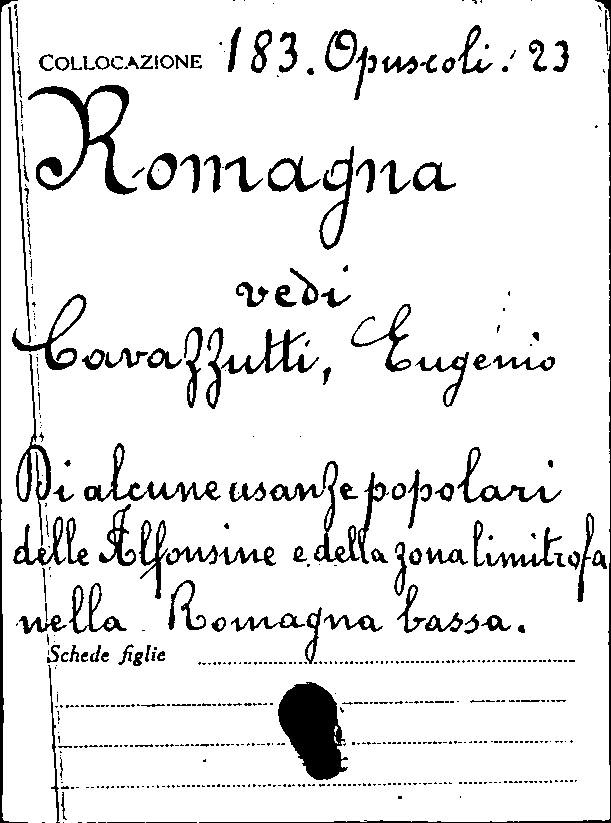 COLLOCAZIONE 183. Opuscoli. 23
Romagna
vedi
Cavazzutti, Eugenio
Di alcune usanze popolari
delle Alfonsine e della zona limitrofa
nella Romagna bassa.
Schede figlie